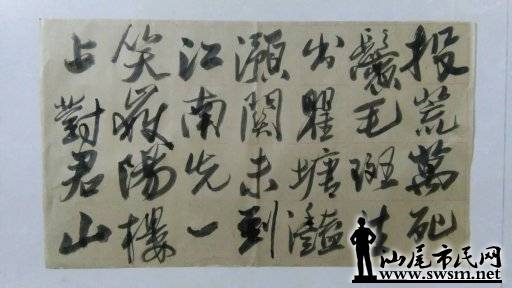 投荒萬死
鬢毛斑生
出瞿塘灩
澦關未到
江南先一
笑岳陽樓
上對君山
汕尾市民网
www.swsm.net